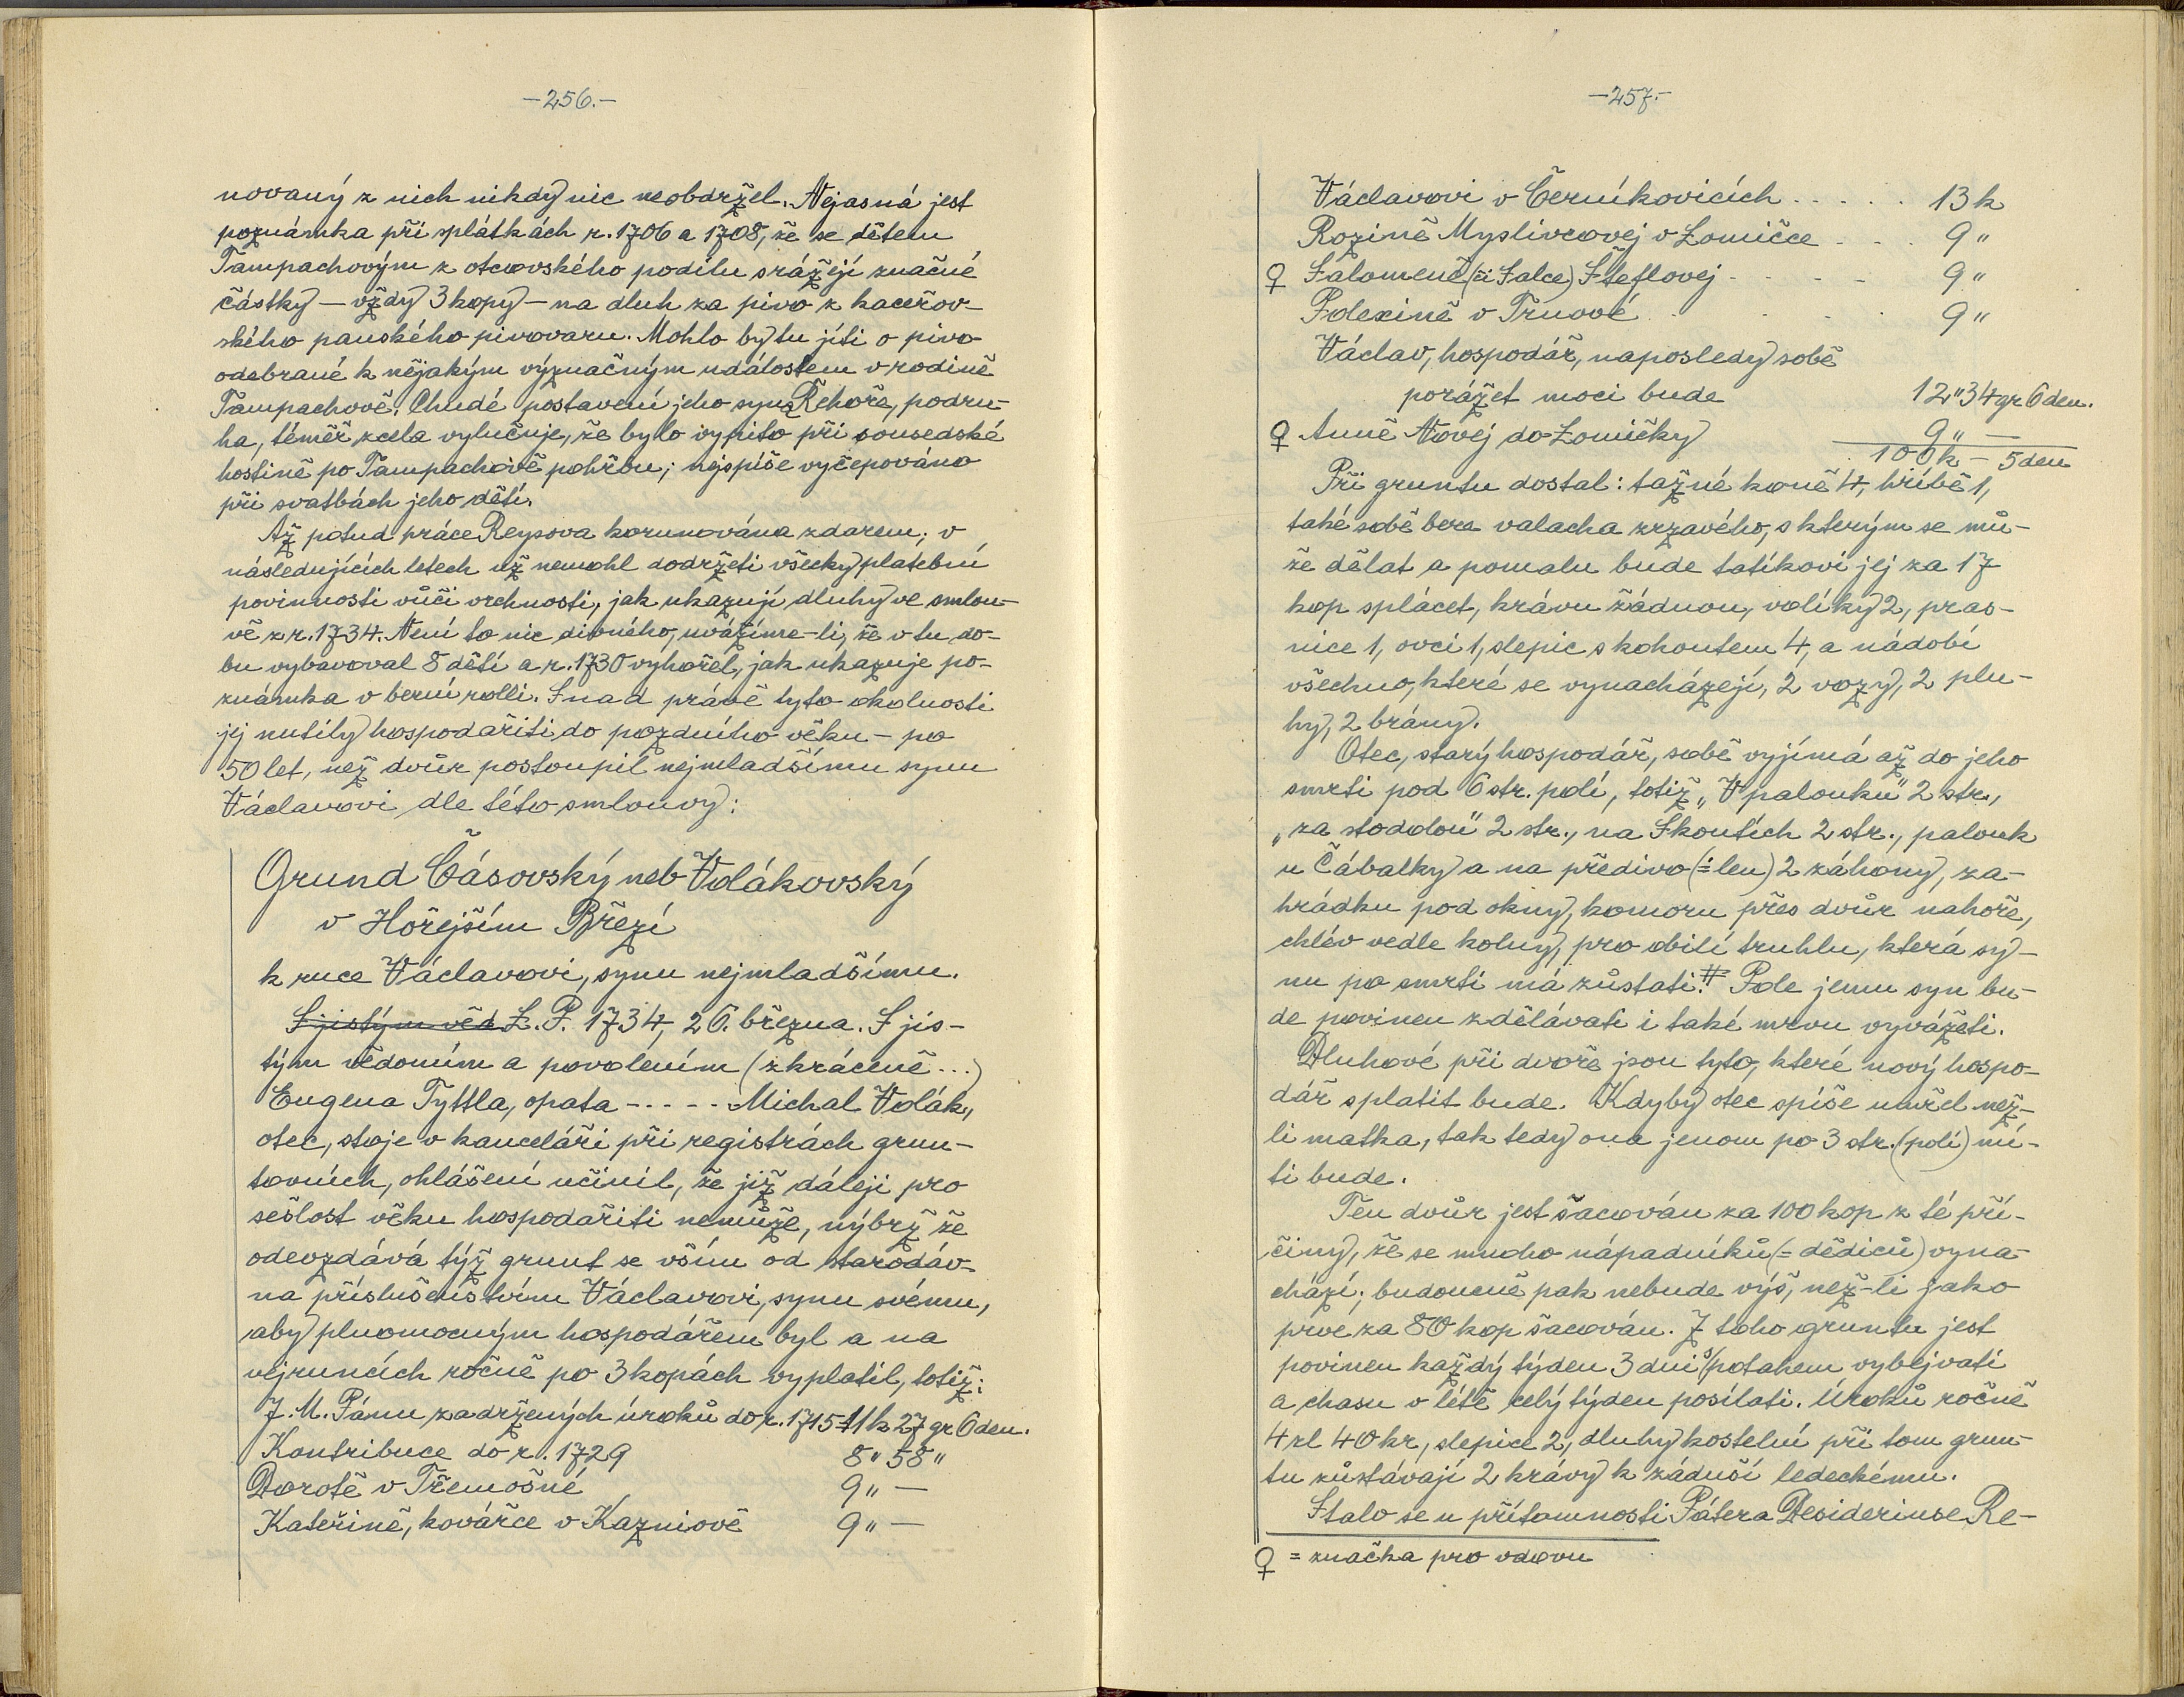 —256.—
novaný z nich nikdy nic neobdržel. Nejasná jest
poznámka při splátkách r. 1706 a 1708, že se dětem
Tampachovým z otcovského podílu srážejí značné
částky — vždy 3 kopy — na dluh za pivo z kaceřov-
ského panského pivovaru. Mohlo by tu jíti o pivo
odebrané k nějakým význačným událostem v rodině
Tampachově. Chudé postavení jeho syna Řehoře, podru-
ha, téměř zcela vylučuje, že bylo vypito při sousedské
hostině po Tampachově pohřbu; nejspíše vyčepováno
při svatbách jeho dětí.
Až potud práce Reysova korunována zdarem; v
následujících letech už nemohl dodržeti všecky platební
povinnosti vůči vrchnosti, jak ukazují dluhy ve smlou-
vě z r. 1734. Není to nic divného, uvážíme-li, že v tu do-
bu vybavoval 8 dětí a r. 1730 vyhořel, jak ukazuje po-
známka v berní rolli. Snad právě tyto okolnosti
jej nutily hospodařiti do pozdního věku — po
50 let, než dvůr postoupil nejmladšímu synu
Václavovi dle této smlouvy:
Grund Čásovský neb Volákovský
v Hořejším Březí
k ruce Václavovi, synu nejmladšímu.
S jistým věd L. P. 1734, 26. března. S jis-
tým vědomím a povolením (zkráceně ...)
Eugena Tyttla, opata - - - - - Michal Volák,
otec, stoje v kanceláři při registrách grun-
tovních, ohlášení učinil, že již dáleji pro
sešlost věku hospodařiti nemůže, nýbrž že
odevzdává týž grunt se vším od starodáv-
na příslušenstvím Václavovi, synu svému,
aby plnomocným hospodářem byl a na
vejruncích ročně po 3 kopách vyplatil, totiž:
J. M. Pánu zadržených úroků do r. 1715 11 k 27 gr 6 den.
Kontribuce do r. 1729 8 " 58 "
Dorotě v Třemošné 9 " —
Kateřině, kovářce v Kazniově 9 " —
—257.—
Václavovi v Černíkovicích . . . . . 13 k
Rozině Myslivcovej v Lomičce . . . 9 "
♀ Salomeně (či Salce) Šteflovej - - - - 9 "
Polexině v Trnové . . . . 9 "
Václav, hospodář, naposledy sobě
porážet moci bude 12 " 34 gr 6 den.
♀ Anně Novej do Lomičky 9 " —
100 k — 5 den
Při gruntu dostal: tažné koně 4, hříbě 1,
také sobě bere valacha zrzavého, s kterým se mů-
že dělat a pomalu bude tatíkovi jej za 17
kop splácet, krávu žádnou, volíky 2, pras-
nice 1, ovci 1, slepic s kohoutem 4, a nádobí
všechno, které se vynacházejí, 2 vozy, 2 plu-
hy, 2 brány.
Otec, starý hospodář, sobě vyjímá až do jeho
smrti pod 6 str. polí, totiž „V palouku" 2 str.,
„za stodolou" 2 str., na Skoutích 2 str., palouk
u Čábalky a na předivo (= len) 2 záhony, za-
hrádku pod okny, komoru přes dvůr nahoře,
chlév vedle kolny, pro obilí truhlu, která sy-
nu po smrti má zůstati. # Pole jemu syn bu-
de povinen zdělávati i také mrvu vyvážeti.
Dluhové při dvoře jsou tyto, které nový hospo-
dář splatit bude. Kdyby otec spíše umřel než-
li matka, tak tedy ona jenom po 3 str. (polí) mí-
ti bude.
Ten dvůr jest šacován za 100 kop z té pří-
činy, že se mnoho nápadníků (= dědiců) vyna-
chází; budoucně pak nebude výš, než-li jako
prve za 80 kop šacován. Z toho gruntu jest
povinen každý týden 3 dni s potahem vybejvati
a chasu v létě celý týden posílati. Úroků ročně
4 zl 40 kr, slepice 2, dluhy kostelní při tom grun-
tu zůstávají 2 krávy k záduší ledeckému.
Stalo se u přítomnosti Pátera Desideriuse Re-
♀ = značka pro vdovu